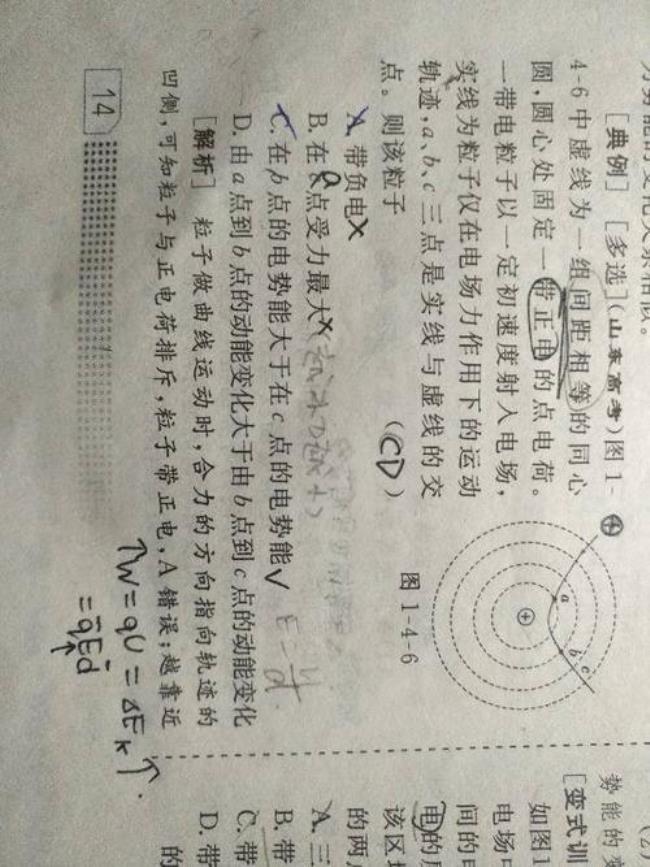 力势能的变化关系相似。
[典例] [多选](山东高考)图1-
4-6中虚线为一组间距相等的同心
圆,圆心处固定一带正电的点电荷。
一带电粒子以一定初速度射入电场,
实线为粒子仅在电场力作用下的运动
轨迹,a、b、c三点是实线与虚线的交
点。则该粒子
(CD)
A. 带负电×
B. 在a点受力最大×
C. 在b点的电势能大于在c点的电势能√
D. 由a点到b点的动能变化大于由b点到c点的动能变化
[解析] 粒子做曲线运动时,合力的方向指向轨迹的
凹侧,可知粒子与正电荷排斥,粒子带正电,A错误;越靠近
④
a
b
c
+
图1-4-6
E=U/d
↑W=qU=ΔEk↑.
=qEd
↑
14
势能的
[变式训
如图
电场中
间的电
电的质
该区域
的两点
A. 三
B. 带
C. 带
D. 带
的